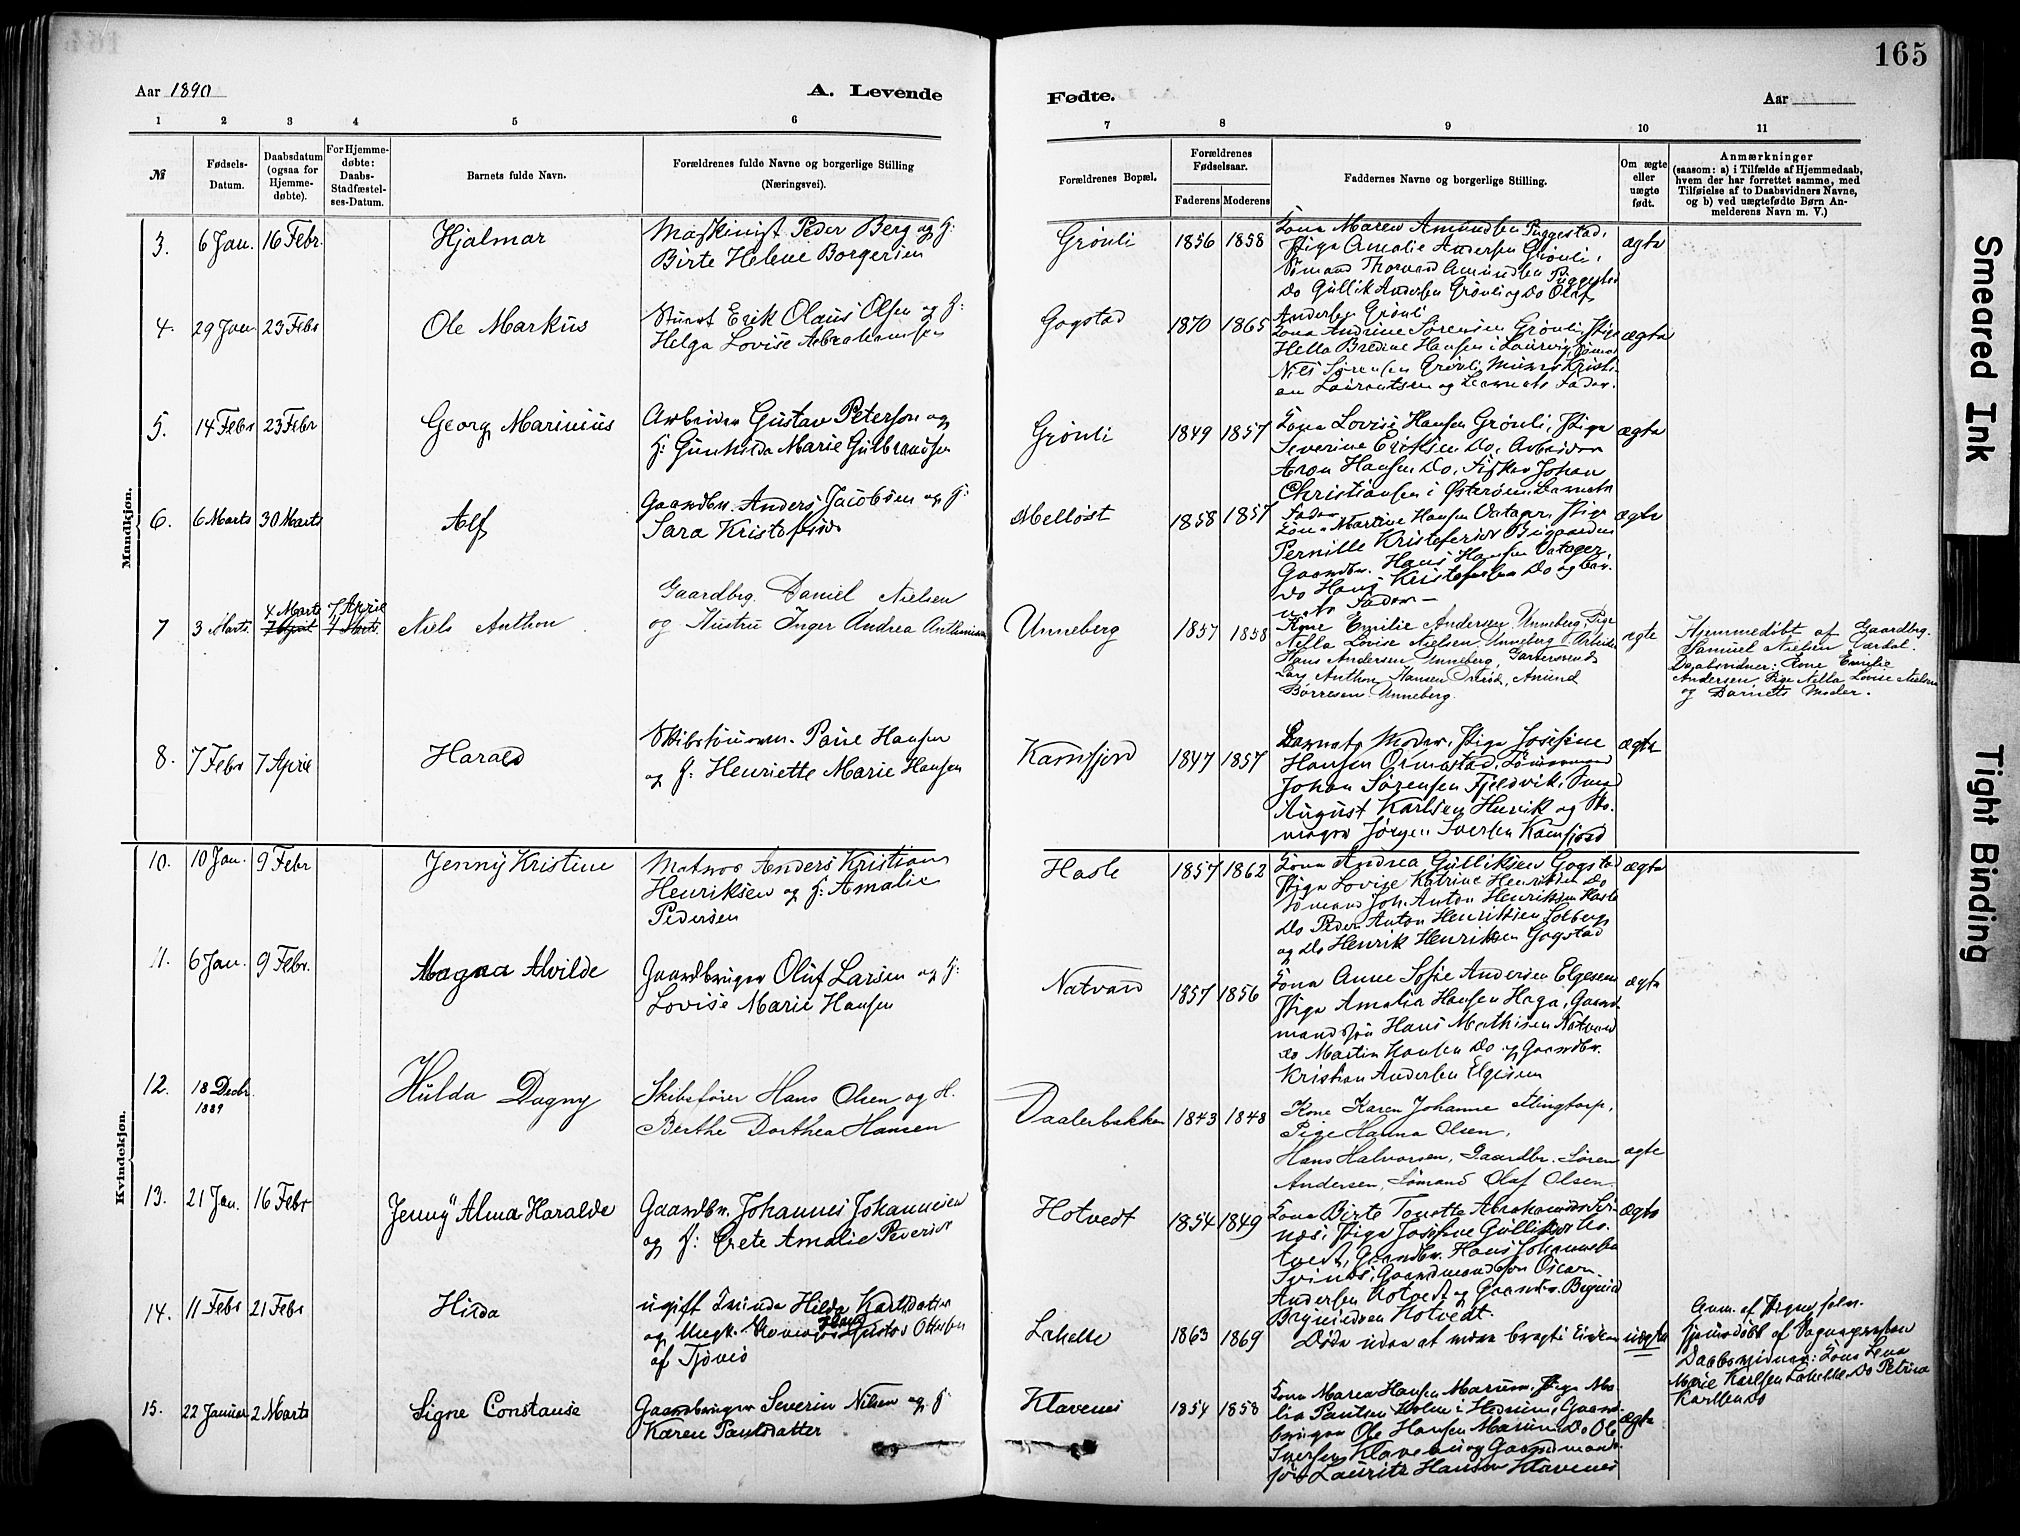 165
Aar 1890
A. Levende
Fødte.
Aar
1 2 3 4 5 6 7 8 9 10 11
№
Fødsels-
Datum.
Daabsdatum
(ogsaa for
Hjemme-
døbte).
For Hjemme-
døbte:
Daabs-
Stadfæstel-
ses-Datum.
Barnets fulde Navn.
Forældrenes fulde Navne og borgerlige Stilling
(Næringsvei).
Forældrenes Bopæl.
Forældrenes
Fødselsaar.
Faderens Moderens
Faddernes Navne og borgerlige Stilling.
Om ægte
eller
uægte
født.
Anmærkninger
(saasom: a) i Tilfælde af Hjemmedaab,
hvem der har forrettet samme, med
Tilføielse af to Daabsvidners Navne,
og b) ved uægtefødte Børn An-
melderens Navn m. V.)
Mandkjøn.
3. 6 Jan. 16 Febr. Hjalmar
Maskinist Peder Berg og H:
Birte Helene Borgersen
Grönli 1856 1858
Kona Maren Amundsen Puggestad,
Pige Amalie Andersen Grönli,
Sömand Thorvard Amundsen Puggestad
Do Gullik Andersen Grönli og Do Olaf
Andersen Grönli
ægte
4. 29 Jan. 23 Febr Ole Markus
Stuert Erik Olaus Olsen og H:
Helga Lovise Abrahamsen
Gogstad 1870 1865
Kona Andrine Sörensen Grönli, Pige
Hella Bredine Hansen i Laurvig, Sömand
Nils Sörensen Grönli, Murer Kristi-
an Laurentsen og Barnets Fader.
ægte
5. 14 Febr 23 Febr Georg Marinius
Arbeider Gustav Peterson og
H: Gunhilda Marie Gulbrandsen
Grönli 1849 1857
Kona Lovise Hansen Grönli, Pige
Severine Eriksen Do, Arbeider
Aron Hansen Do, Fisker Johan
Christiansen i Österöen, Barnets
Fader
ægte
6. 6 Marts 30 Marts Alf
Gaardbr. Anders Jacobsen og H:
Sara Kristofersd.
Melløst 1858 1857
Kona Martine Hansen Vatager, Pige
Pernille Kristofersd Bugaarden
Gaardbr. Hans Hansen Vatager,
Do Hans Kristofersen Do og Bar-
nets Fader
ægte
7 3 Marts. 4 Marts 7 April Niels Anthon
7 April 4 Marts.
Gaardbrg. Daniel Nielsen
og Hustru Inger Andrea Anthonisen
Unneberg 1857 1858
Kone Emilie Andersen, Unneberg, Pige
Nella Lovise Nielsen, Unneberg Arbeider
Hans Andersen Unneberg, Garversvend
Lars Anthon Hansen, Amund
Børresen Unneberg.
ægte
Hjemmedøbt af Gaardbrg.
Samuel Nielsen Virdal.
Daabsvidner: Kone Emilie
Andersen, Pige Nella Lovise Nielsen
og Barnets Moder.
8. 7 Febr 7 April Harald
Skibstömmerm. Paul Hansen
og H: Henriette Marie Hansen
Kamfjord 1847 1857
Barnets Moder, Pige Josefine
Hansen Ormestad, Tömmermand
Johan Sörensen Fjeldvik, Smed
August Karlsen Huvik og Sko-
mager Jörgen Iversen Kamfjord
ægte
Kvindekjøn.
10. 10 Jan. 9 Febr Jenny Kristine
Matros Anders Kristian
Henriksen og H: Amalie
Pedersen
Hasle 1857 1862
Kona Andrea Gulliksen Gogstad
Pige Lovise Katrine Henriksen Do
Sömand Joh. Anton Henriksen Hasle
Do Peder Anton Henriksen Solberg
og Do Henrik Henriksen Gogstad
ægte
11. 6 Jan. 9 Febr. Magna Alvilde
Gaardbruger Oluf Larsen og H:
Lovise Marie Hansen
Natvad 1857 1856
Kona Anne Sofie Andersen Elgesem
Pige Amalia Hansen Haga, Gaard-
mandssön Hans Mathisen Natvad
Do Martin Hansen Do og Gaardbr.
Kristian Andersen Elgesem
ægte
12. 18 Decbr. 1889 Hulda Dagny
Skibsfører Hans Olsen og H.
Berthe Dorthea Hansen
Daalerbakken 1843 1848
Kone Karen Johanne Klingtorp,
Pige Hanna Olsen,
Hans Halvorsen, Gaardbr. Søren
Andersen, Sømand Olaf Olsen.
ægte
13. 21 Jan. 16 Febr Jenny Alma Haralde
Gaardbr. Johannes Johannesen
og H: Grete Amalie Pedersd
Hotvedt 1854 1849
Kona Birte Tonette Abrahamsd Vir-
næs, Pige Josefine Gulliksen Ho-
tvedt, Gaardbr. Hans Johannesen
Svinæs, Gaardmandssön Oscar
Andersen Hotvedt og Gaardbr. Brynild
Brynildsen Hotvedt.
ægte
14. 11 Febr 21 Febr Hilda
ugift Kvinde Hilda Karlsdatter
og Ungk. Hans Gustav Ottersen
af Tjömö
Lahelle 1863 1869
Döde uden at være bragt i Kirken
uægte
Anm. af Pigen selv.
Hjemdöbt af Sognepresten
Daabsvidner: Kona Lena
Marie Karlsen Lahelle Do Petrina
Karlsen Do
15. 22 Januar 2 Marts Signe Constanse
Gaardbruger Severin Nilsen og H:
Karen Paulsdatter
Klavenes 1854 1858
Kona Maren Hansen Marum, Pige Ma-
lia Paulsen Holm i Hedrum, Gaard-
bruger Ole Hansen Marum, Do Ole
Iversen Klavenes og Gaardmands-
sön Lauritz Hansen Klavenes
ægte
Smeared Ink
Tight Binding